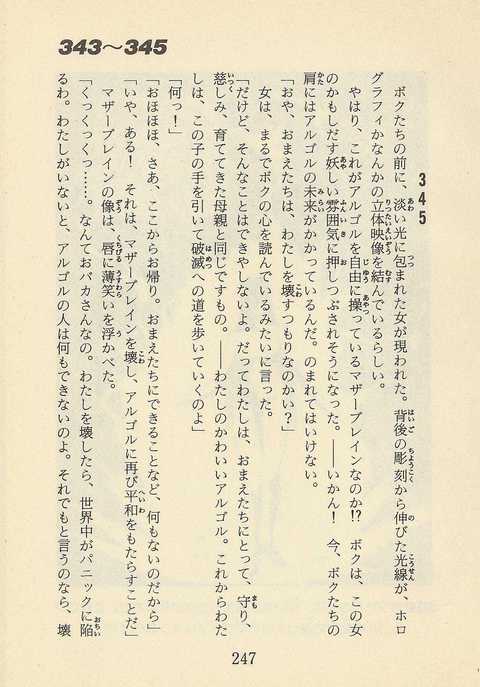 343〜345
345
ボクたちの前に、淡い光に包まれた女が現われた。背後の彫刻から伸びた光線が、ホロ
グラフィかなんかの立体映像を結んでいるらしい。
やはり、これがアルゴルを自由に操っているマザーブレインなのか!? ボクは、この女
のかもしだす妖しい雰囲気に押しつぶされそうになった。――いかん! 今、ボクたちの
肩にはアルゴルの未来がかかっているんだ。のまれてはいけない。
「おや、おまえたちは、わたしを壊すつもりなのかい?」
女は、まるでボクの心を読んでいるみたいに言った。
「だけど、そんなことはできやしないよ。だってわたしは、おまえたちにとって、守り、
慈しみ、育ててきた母親と同じですもの。――わたしのかわいいアルゴル。これからわた
しは、この子の手を引いて破滅への道を歩いていくのよ」
「何っ!」
「おほほほ、さあ、ここからお帰り。おまえたちにできることなど、何もないのだから」
「いや、ある! それは、マザーブレインを壊し、アルゴルに再び平和をもたらすことだ」
マザーブレインの像は、唇に薄笑いを浮かべた。
「くっくっくっ……。なんておバカさんなの。わたしを壊したら、世界中がパニックに陥
るわ。わたしがいないと、アルゴルの人は何もできないのよ。それでもと言うのなら、壊
247